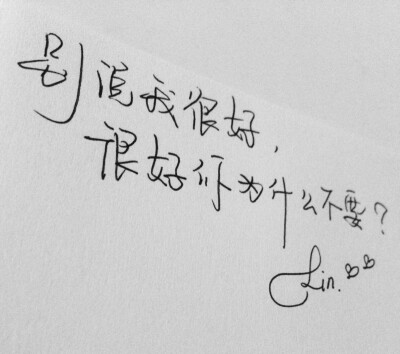 别说我很好，
很好你为什么不要？
Lin.